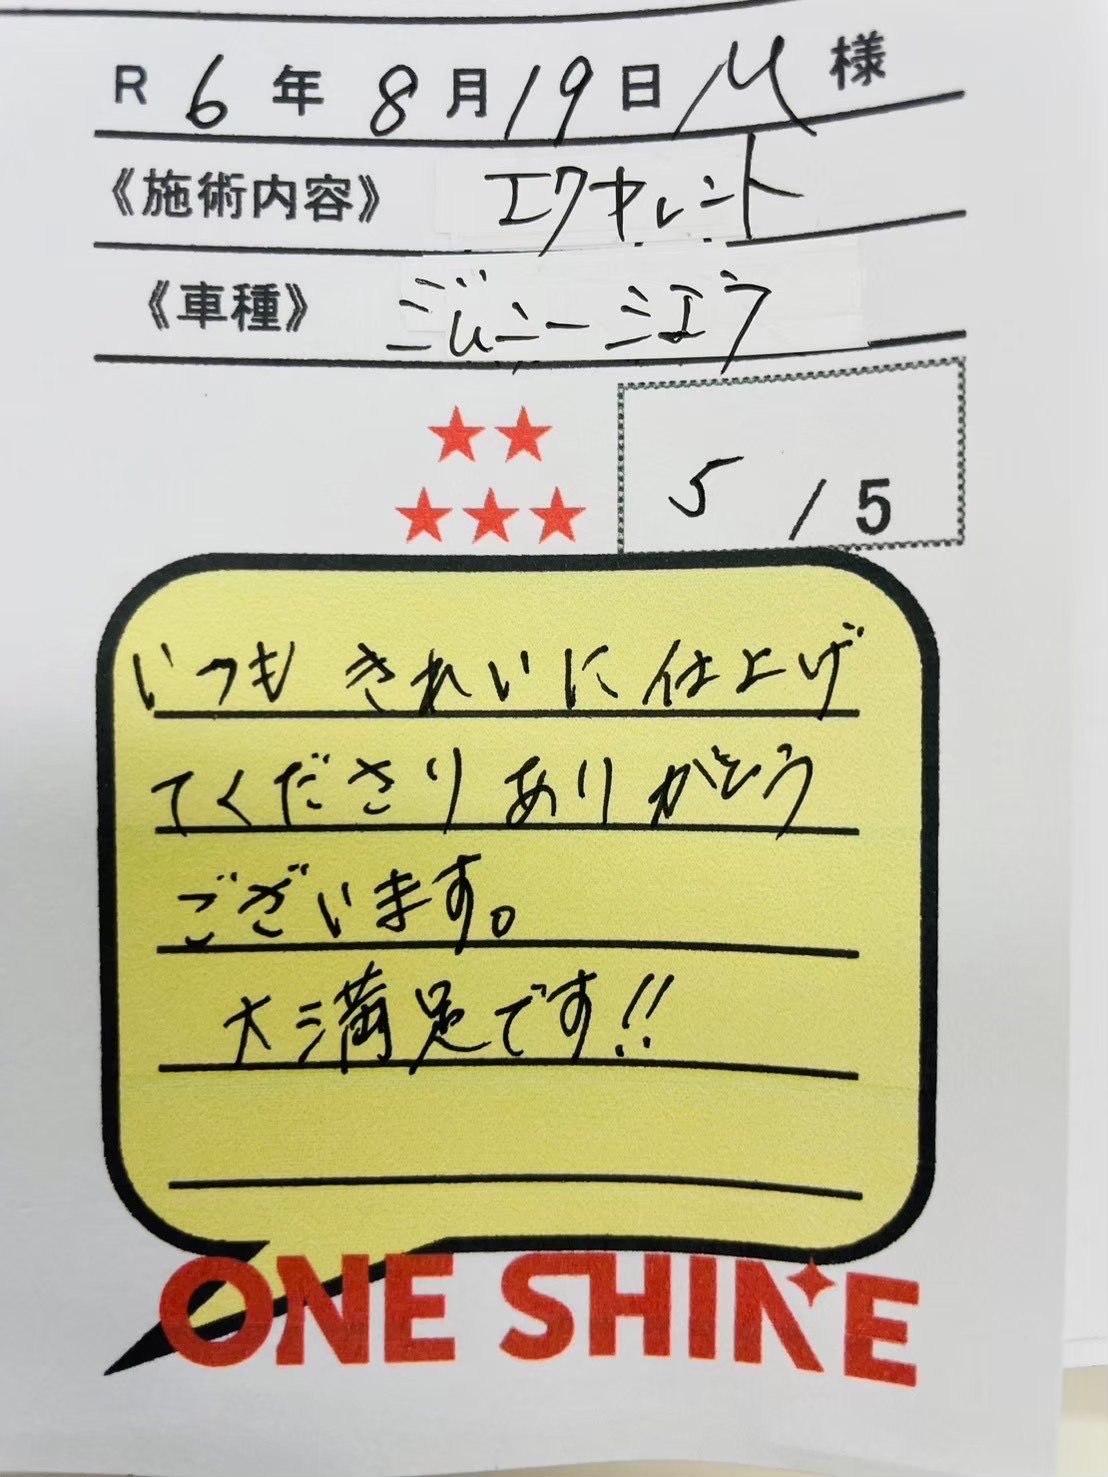 R 6年 8月19日 M 様
《施術内容》 エクセレント
《車種》 ジムニーシエラ
★★
★★★
5 / 5
いつも きれいに仕上げ
てくださり ありがとう
ございます。
大満足です!!
ONE SHINE